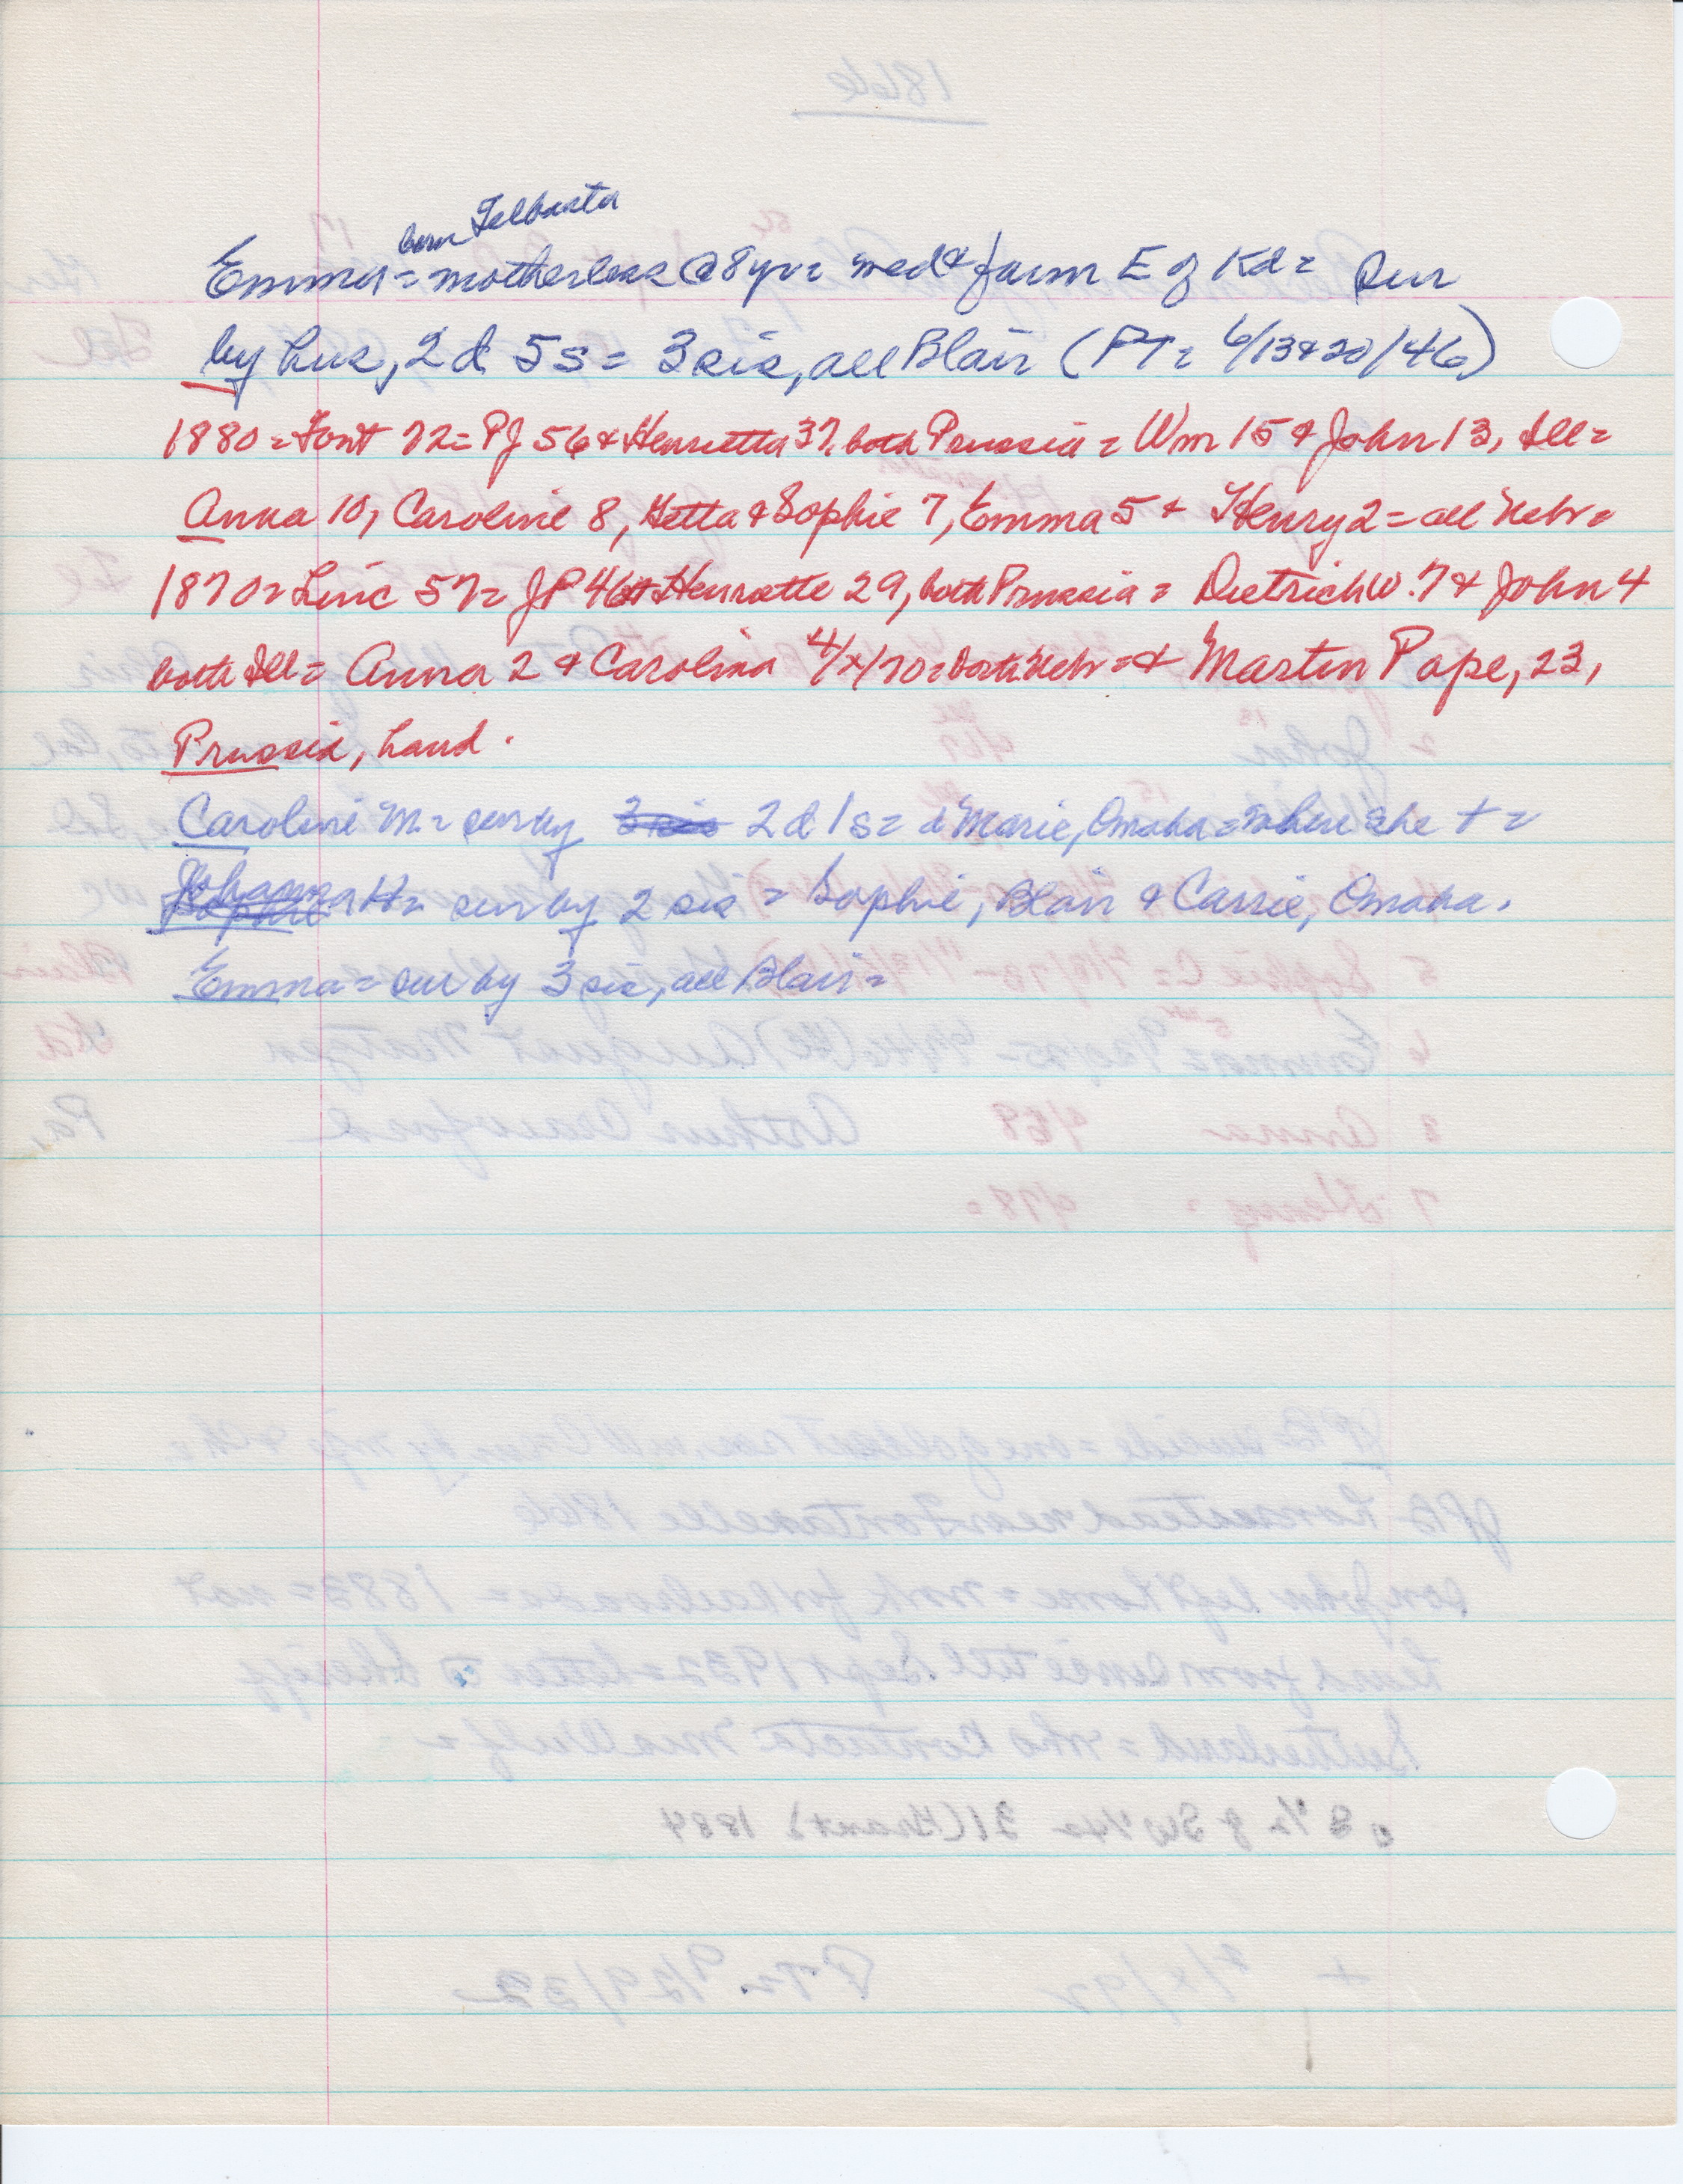 born Telbasta
Emma = motherless @ 8 yr = med & farm E of Kd = sur
by hus, 2 d 5 s = 3 sis, all Blair (PT = 6/13 & 20/46)
1880 = Font 72 = PJ 56 & Henrietta 37, both Prussia = Wm 15 & John 13, Ill =
Anna 10, Caroline 8, Hetta & Sophie 7, Emma 5 & Henry 2 = all Nebr =
1870 = Linc 57 = JP 46 & Henrette 29, both Prussia = Dietrich W. 7 & John 4
both Ill = Anna 2 & Carolina 4/x/70 = both Nebr = & Martin Pape, 23,
Prussia, hand.
Caroline M = sur by 3 sis 2 d 1 s = d Marie, Omaha = where she + =
Johanna H = sur by 2 sis = Sophie, Blair & Carrie, Omaha.
Emma = sur by 3 sis, all Blair =